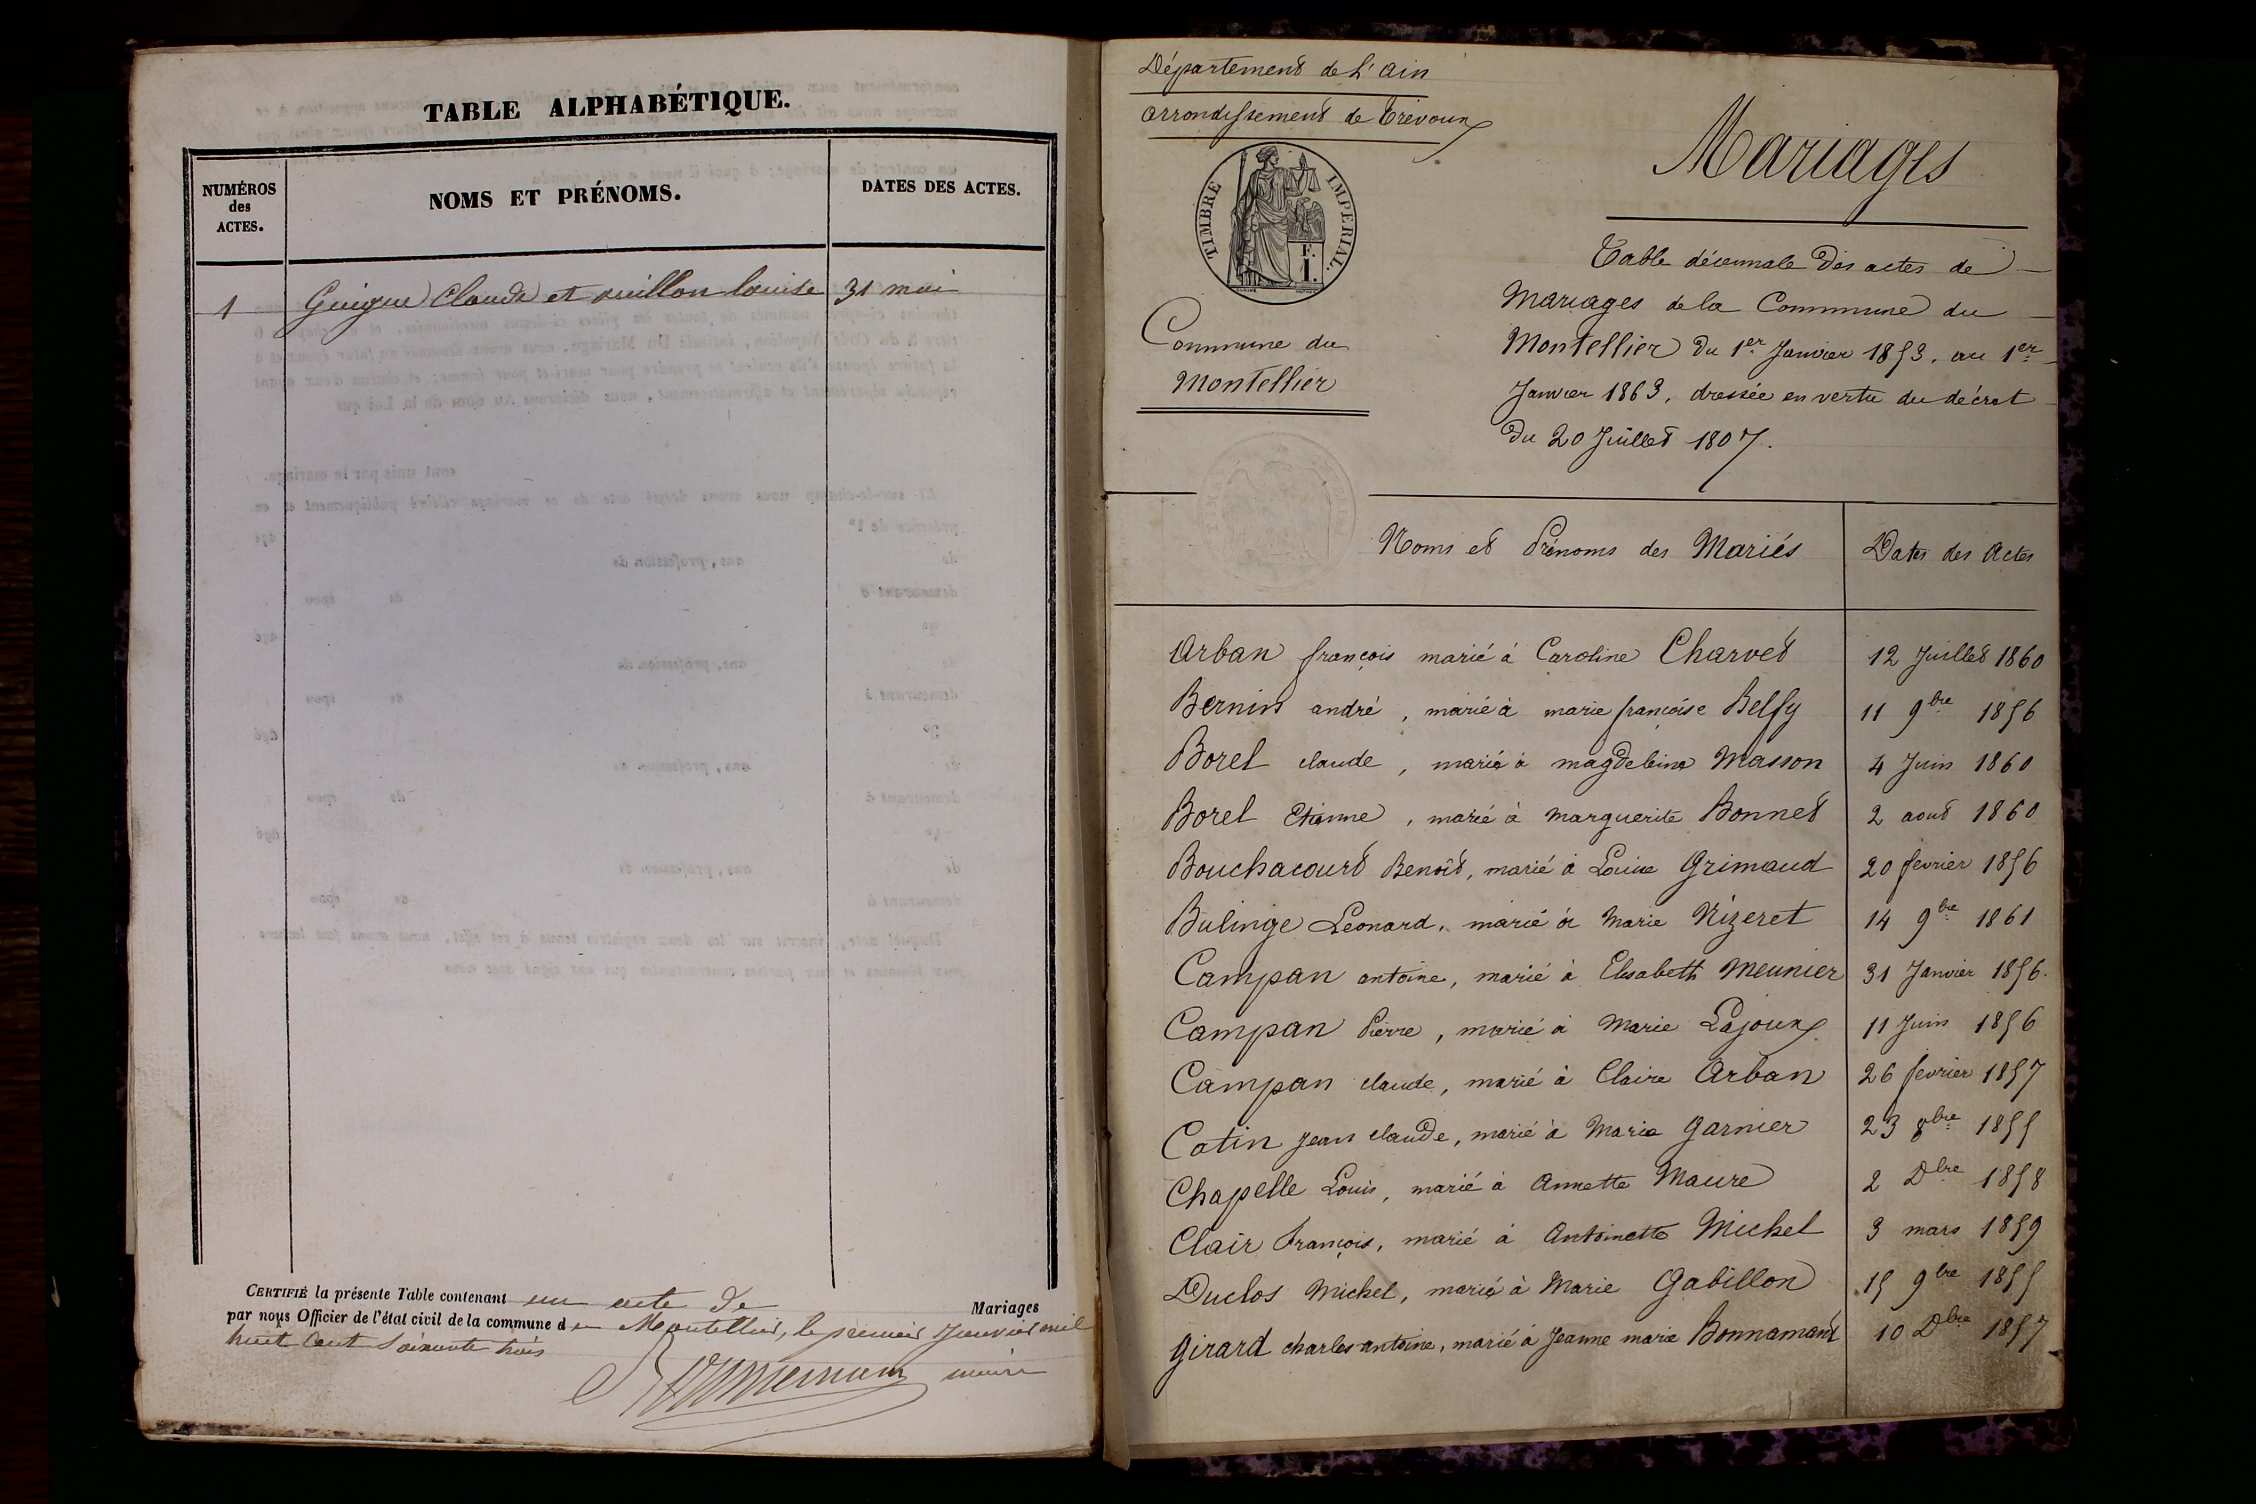 TABLE ALPHABÉTIQUE.
NUMÉROS
des
ACTES.
NOMS ET PRÉNOMS.
DATES DES ACTES.
1 Guigue Claude et ouillon louise 31 mai
CERTIFIÉ la présente Table contenant un acte de Mariages
par nous Officier de l'état civil de la commune du Montellier, le premier Janvier mil
huit cent soixante trois
maire
Département de L'ain
arrondissement de Trévoux
TIMBRE IMPERIAL.
F.
1.
Commune du
Montellier
Mariages
Table décennale des actes de
Mariages de la Commune du
Montellier du 1er Janvier 1853, au 1er
Janvier 1863, dressée en vertu du décret
du 20 Juillet 1807.
Noms et Prénoms des Mariés Dates des Actes
Arban françois marié à Caroline Charvet 12 Juillet 1860
Bernin andré, marié à marie françoise Belfy 11 9bre 1856
Borel claude, marié à magdeleine Masson 4 Juin 1860
Borel Etienne, marié à marguerite Bonnet 2 aout 1860
Bouchacourt Benoît, marié à Louise Grimaud 20 fevrier 1856
Bulinge Leonard, marié à Marie Nizeret 14 9bre 1861
Campan antoine, marié à Elisabeth Meunier 31 Janvier 1856.
Campan Pierre, marié à Marie Lajoux 11 Juin 1856
Campan claude, marié à Claire Arban 26 fevrier 1857
Catin Jean claude, marié à Marie Garnier 23 8bre 1855
Chapelle Louis, marié à Annette Maure 2 Dbre 1858
Clair François, marié à Antoinette Michel 3 mars 1859
Duclos Michel, marié à Marie Gabillon 15 9bre 1855
Girard charles antoine, marié à Jeanne marie Bonnamant 10 Dbre 1857